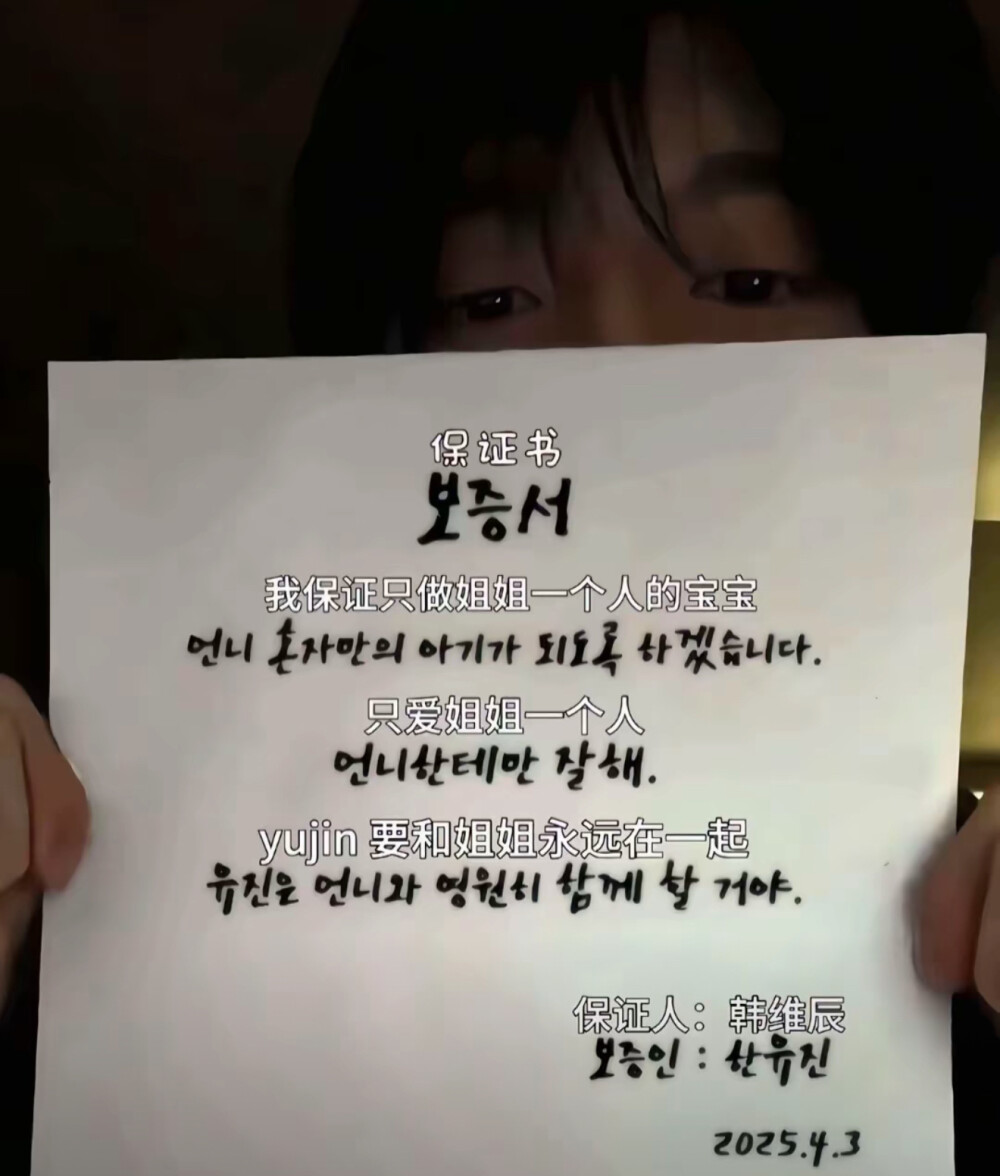 保证书
보증서
我保证只做姐姐一个人的宝宝
언니 혼자만의 아기가 되도록 하겠습니다.
只爱姐姐一个人
언니한테만 잘해.
yujin 要和姐姐永远在一起
유진은 언니와 영원히 함께 할 거야.
保证人：韩维辰
보증인 : 한유진
2025.4.3